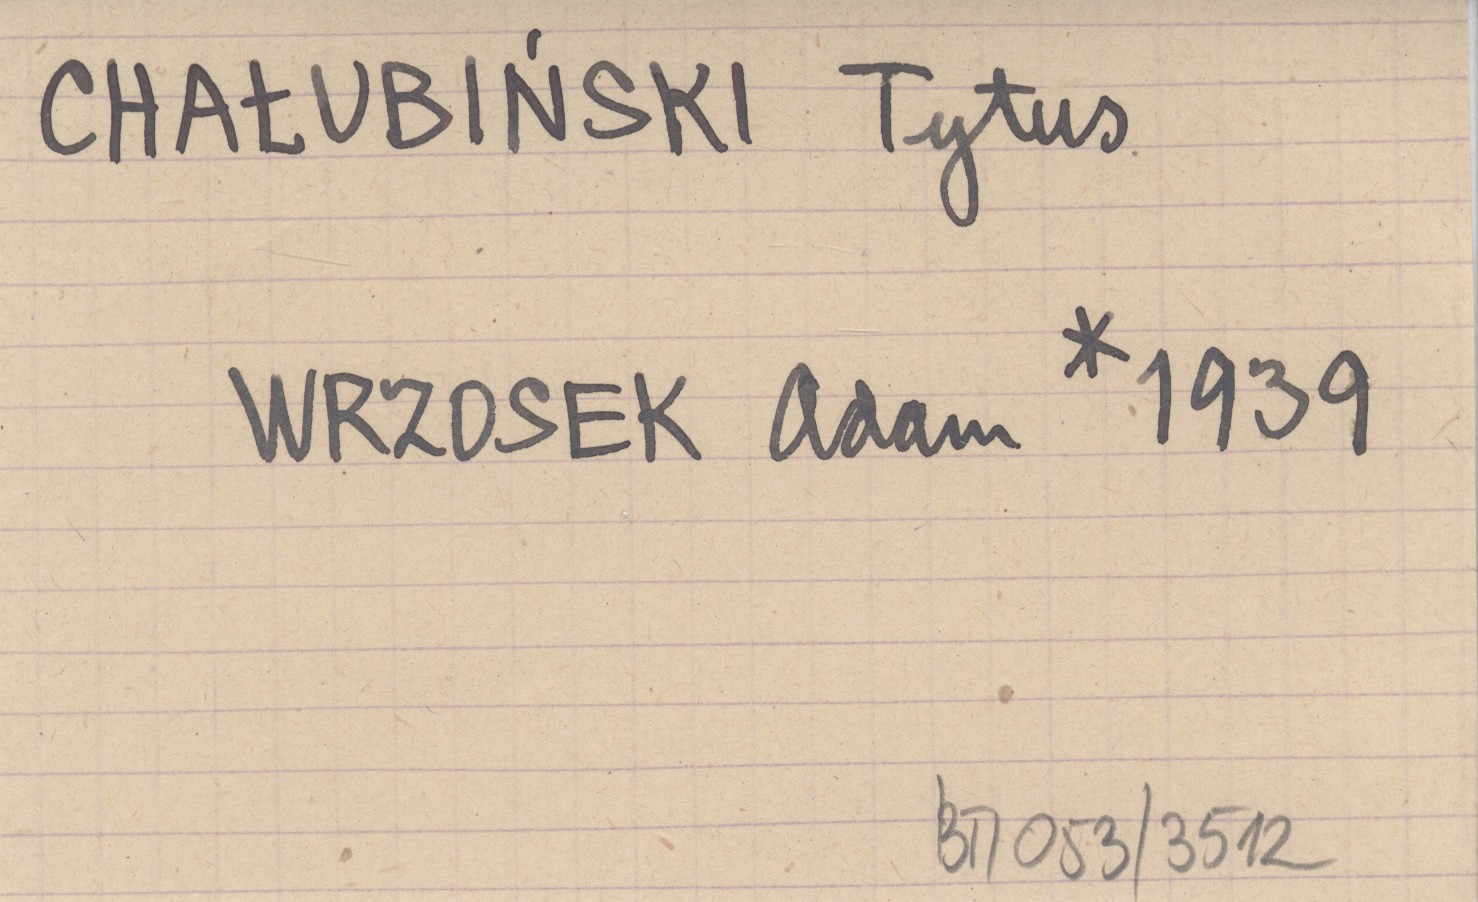 CHAŁUBIŃSKI Tytus
WRZOSEK Adam *1939
053/3512